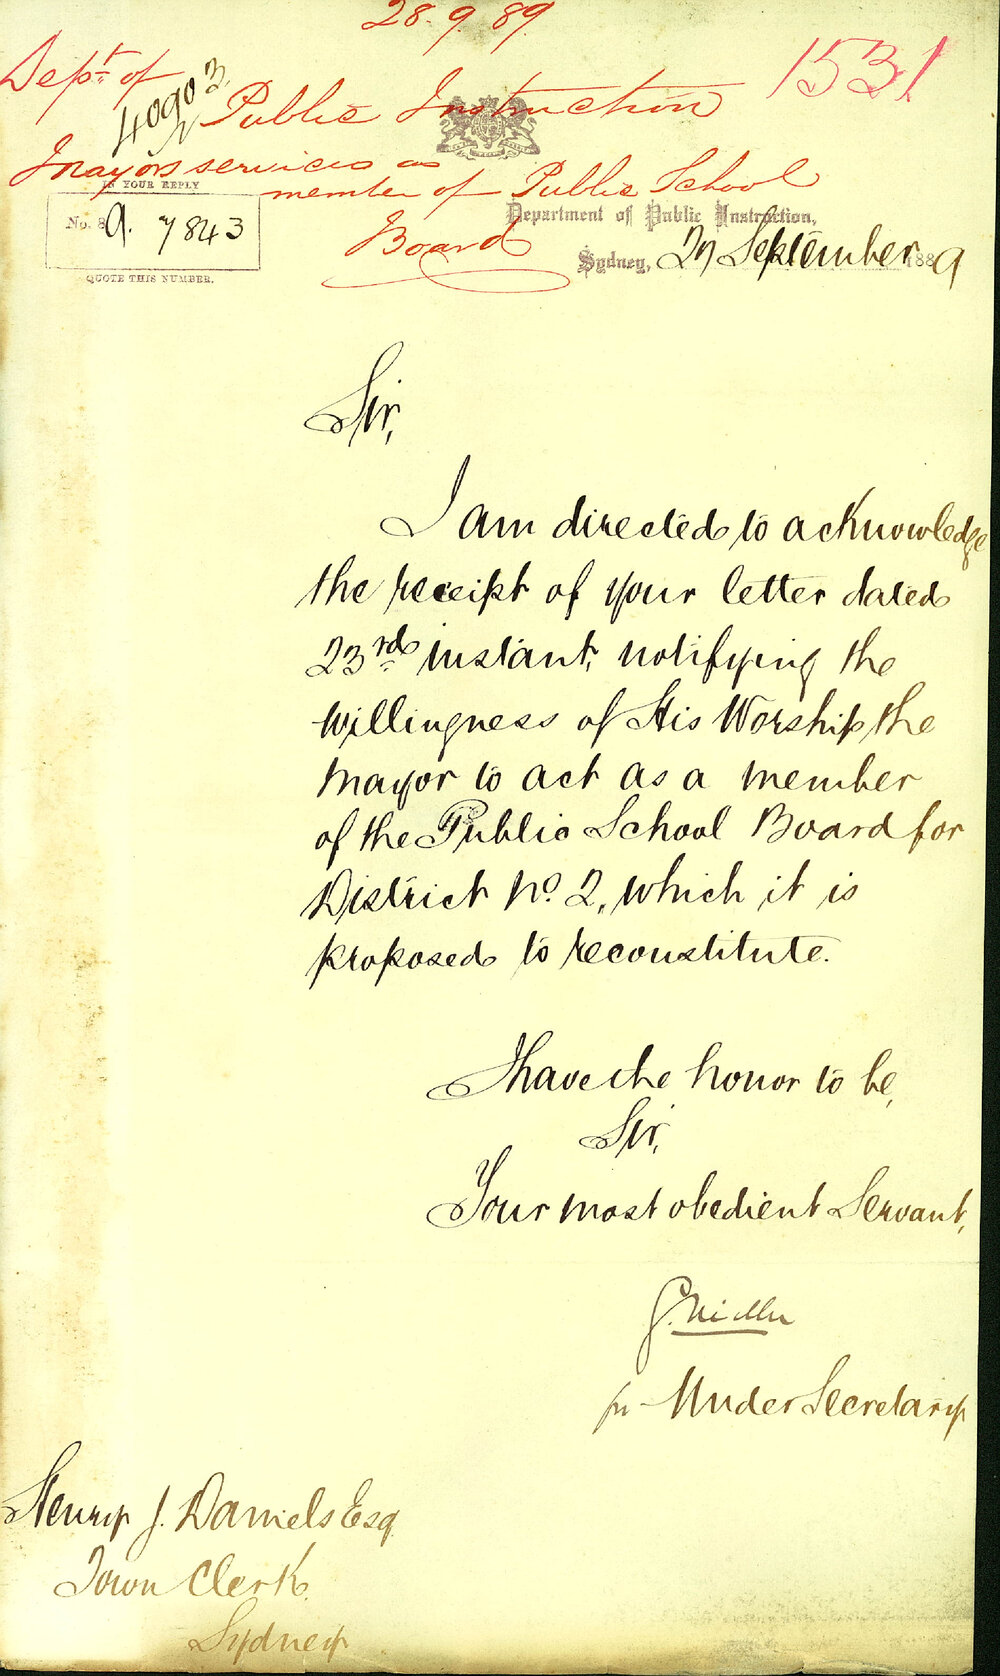 28.9.89
Dept of
40903
Public Instruction
1531
Mayors services as
member of Public School
Board
IN YOUR REPLY
No. 89. 7843
QUOTE THIS NUMBER.
Department of Public Instruction,
Sydney, 27 September 1889
Sir,
I am directed to acknowledge
the receipt of your letter dated
23rd instant, notifying the
willingness of His Worship, the
Mayor to act as a member
of the Public School Board for
District No. 2, which it is
proposed to reconstitute.
I have the honor to be,
Sir,
Your most obedient Servant,
G. Miller
for Under Secretary
Henry J. Daniels Esq
Town Clerk
Sydney